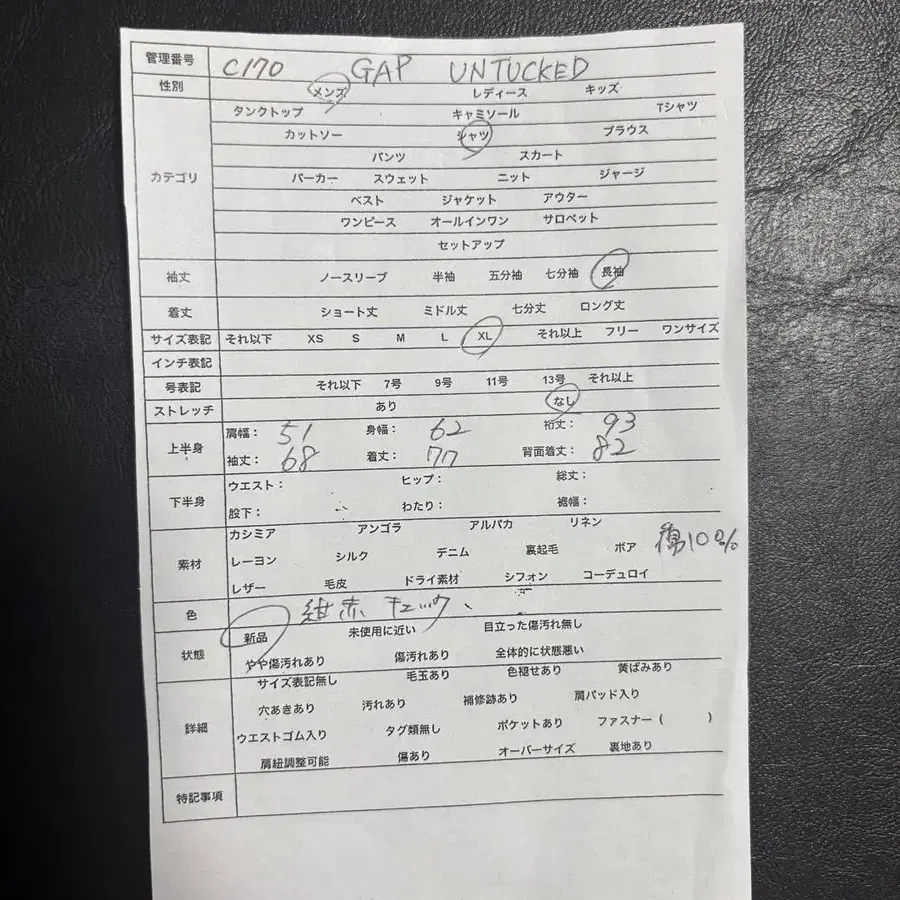 管理番号 C170 GAP UNTUCKED
性別 メンズ レディース キッズ
タンクトップ キャミソール Tシャツ
カットソー シャツ ブラウス
パンツ スカート
カテゴリ パーカー スウェット ニット ジャージ
ベスト ジャケット アウター
ワンピース オールインワン サロペット
セットアップ
袖丈 ノースリーブ 半袖 五分袖 七分袖 長袖
着丈 ショート丈 ミドル丈 七分丈 ロング丈
サイズ表記 それ以下 XS S M L XL それ以上 フリー ワンサイズ
インチ表記
号表記 それ以下 7号 9号 11号 13号 それ以上
ストレッチ あり なし
上半身 肩幅: 51 身幅: 62 裄丈: 93
袖丈: 68 着丈: 77 背面着丈: 82
下半身 ウエスト: ヒップ: 総丈:
股下: わたり: 裾幅:
カシミア アンゴラ アルパカ リネン
素材 レーヨン シルク デニム 裏起毛 ボア 綿100%
レザー 毛皮 ドライ素材 シフォン コーデュロイ
色 紺赤 チェック
状態 新品 未使用に近い 目立った傷汚れ無し
やや傷汚れあり 傷汚れあり 全体的に状態悪い
サイズ表記無し 毛玉あり 色褪せあり 黄ばみあり
詳細 穴あきあり 汚れあり 補修跡あり 肩パッド入り
ウエストゴム入り タグ類無し ポケットあり ファスナー( )
肩紐調整可能 傷あり オーバーサイズ 裏地あり
特記事項